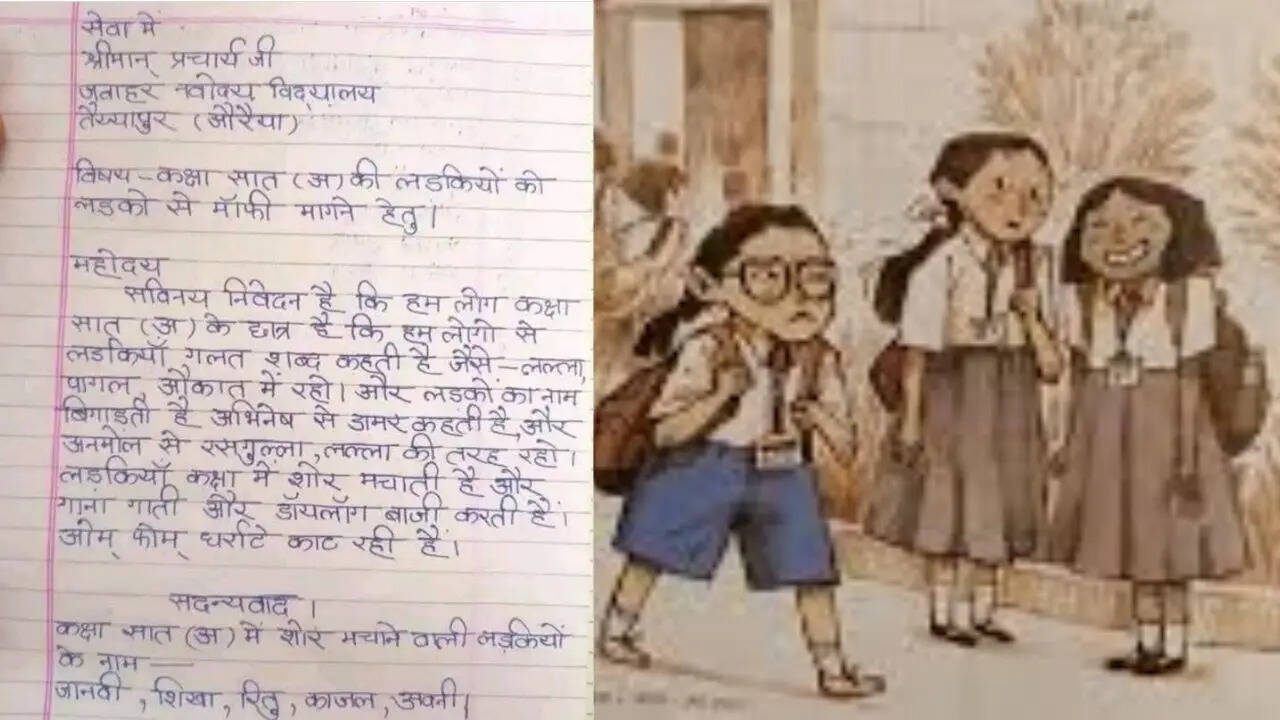 सेवा में
श्रीमान् प्रचार्य जी
जवाहर नवोदय विद्यालय
तैय्यापुर (औरैया)
विषय - कक्षा सात (अ) की लडकियों को
लडको से मॉफी मागने हेतु।
महोदय
सविनय निवेदन है कि हम लोग कक्षा
सात (अ) के छात्र है कि हम लोगो से
लडकियाँ गलत शब्द कहती है जैसे - लल्ला,
पागल, औकात में रहो। और लडकों का नाम
बिगाडती है अभिनेष से डामर कहती है, और
अनमोल से रसगुल्ला, लल्ला की तरह रहो।
लडकियाँ कक्षा में शोर मचाती है और
गाना गाती और डॉयलॉग बाजी करती है।
ओम् फोम् धर्राटे काट रही है।
सदन्यवाद।
कक्षा सात (अ) में शोर मचाने वाली लड़कियों
के नाम —
जानवी, शिखा, रितु, काजल, अवनी।